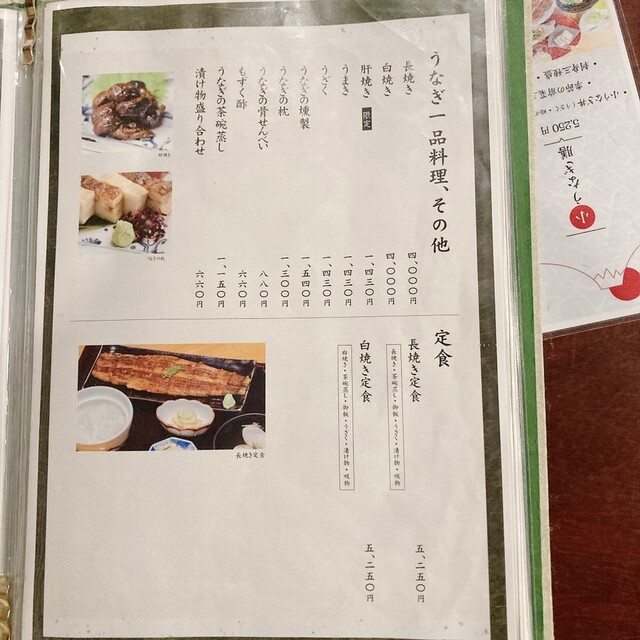 うなぎ一品料理、その他
長焼き 四、〇〇〇円
白焼き 四、〇〇〇円
肝焼き 限定 一、四三〇円
うまき 一、四三〇円
うざく 一、四三〇円
うなぎの燻製 一、五四〇円
うなぎの枕 一、三〇〇円
うなぎの骨せんべい 八八〇円
もずく酢 六六〇円
うなぎの茶碗蒸し 一、一五〇円
漬け物盛り合わせ 六六〇円
肝焼き
定食
長焼き定食 五、二五〇円
長焼き・茶碗蒸し・御飯・うざく・漬け物・吸物
白焼き定食 五、二五〇円
白焼き・茶碗蒸し・御飯・うざく・漬け物・吸物
長焼き定食
小 うなぎ膳
5,250円
・刺身三種盛